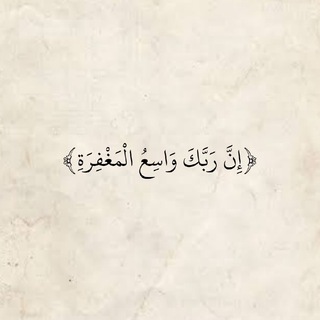 ﴿إِنَّ رَبَّكَ وَاسِعُ الْمَغْفِرَةِ﴾